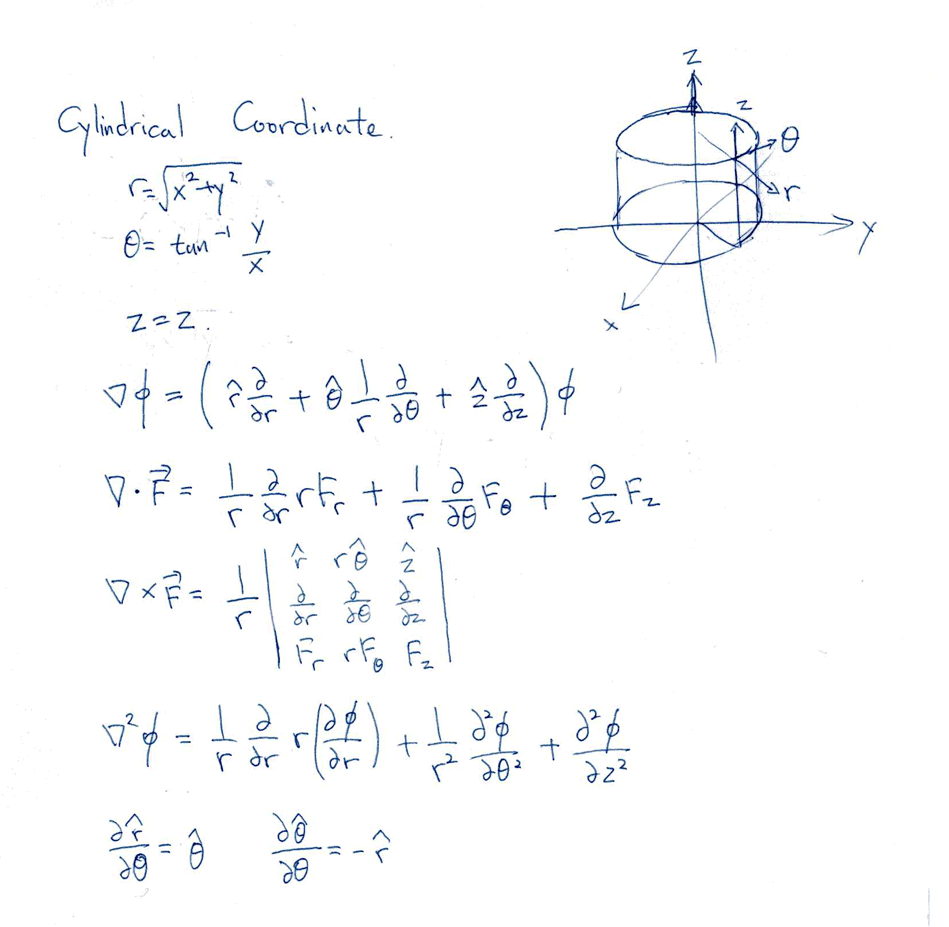 Cylindrical Coordinate.
r=√(x²+y²)
θ= tan⁻¹ y/x
z=z.
∇ϕ = ( r̂ ∂/∂r + θ̂ 1/r ∂/∂θ + ẑ ∂/∂z ) ϕ
∇·F⃗ = 1/r ∂/∂r rF_r + 1/r ∂/∂θ F_θ + ∂/∂z F_z
∇×F⃗ = 1/r | r̂ rθ̂ ẑ |
| ∂/∂r ∂/∂θ ∂/∂z |
| F_r rF_θ F_z |
∇²ϕ = 1/r ∂/∂r r(∂ϕ/∂r) + 1/r² ∂²ϕ/∂θ² + ∂²ϕ/∂z²
∂r̂/∂θ = θ̂ ∂θ̂/∂θ = -r̂
z
z
θ
r
y
x